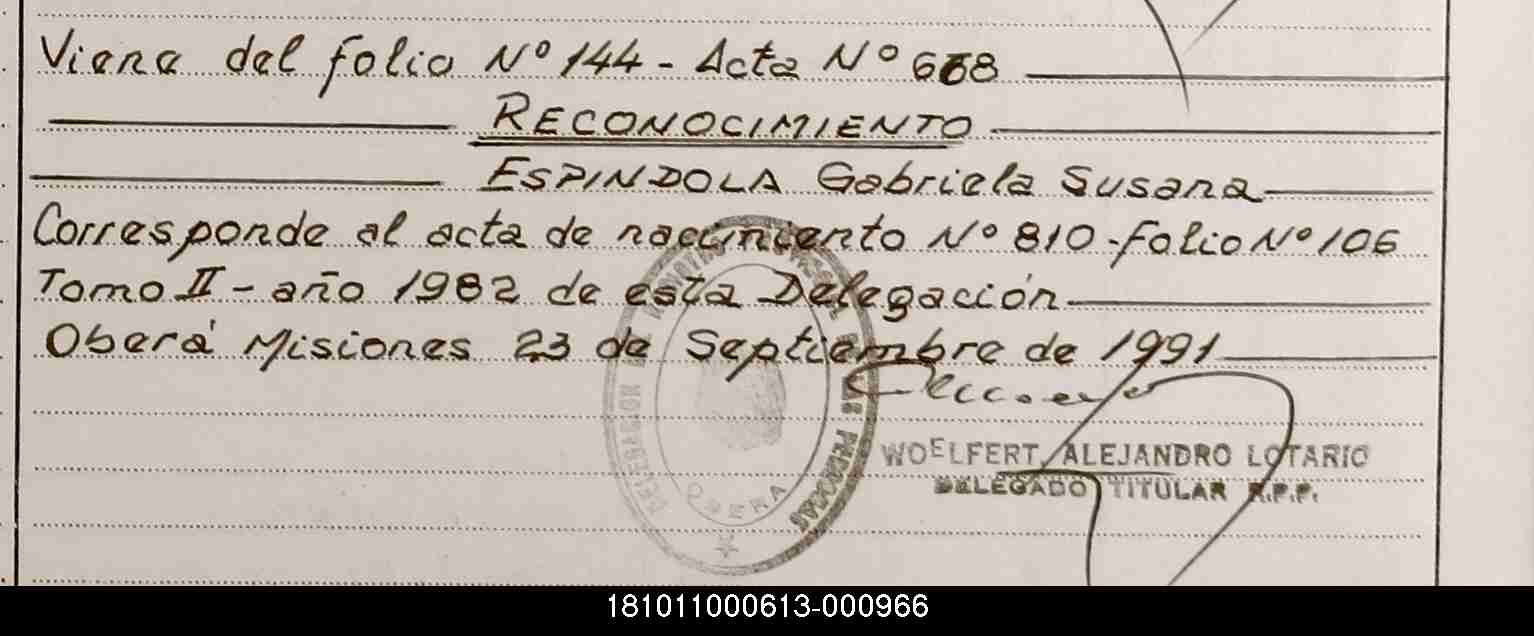 Viene del folio Nº 144 - Acta Nº 668
RECONOCIMIENTO
ESPINDOLA Gabriela Susana
Corresponde al acta de nacimiento Nº 810 - folio Nº 106
Tomo II - año 1982 de esta Delegación
Oberá Misiones 23 de Septiembre de 1991
WOELFERT, ALEJANDRO LOTARIO
DELEGADO TITULAR R.P.P.
DELEGACION DE
DE LAS PERSONAS
OBERA
181011000613-000966